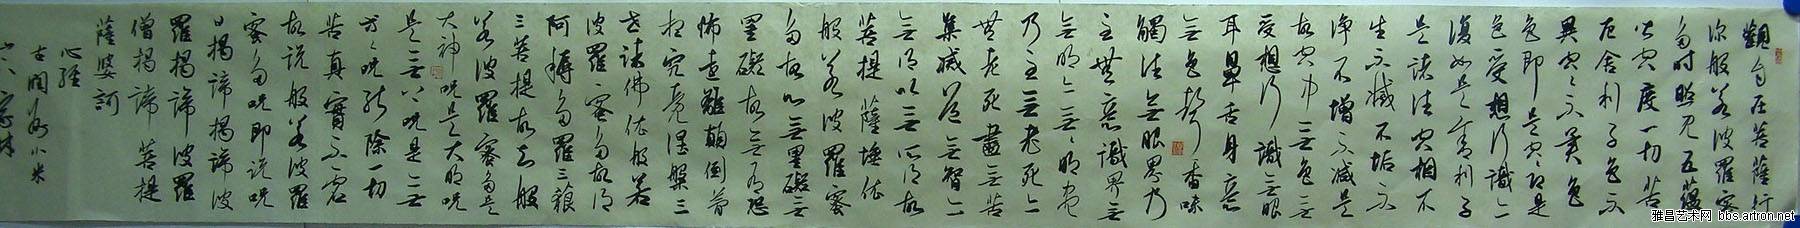 觀自在菩薩行
深般若波羅蜜
多時照見五蘊
皆空度一切苦
厄舍利子色不
異空空不異色
色即是空空即是
色受想行識亦
復如是舍利子
是諸法空相不
生不滅不垢不
淨不增不減是
故空中无色无
受想行識无眼
耳鼻舌身意
无色聲香味
觸法无眼界乃
至無意識界无
无明亦无无明盡
乃至无老死亦
無老死盡无苦
集滅道无智亦
无得以无所得故
菩提薩埵依
般若波羅蜜
多故心无罣礙无
罣礙故无有恐
怖遠離顛倒夢
想究竟涅槃三
世諸佛依般若
波羅蜜多故得
阿耨多羅三藐
三菩提故知般
若波羅蜜多是
大神咒是大明咒
是无上咒是无
等等咒能除一切
苦真實不虛
故說般若波羅
蜜多咒即說咒
曰揭諦揭諦波
羅揭諦波羅
僧揭諦菩提
薩婆訶
心經
雅昌艺术网 bbs.artron.net